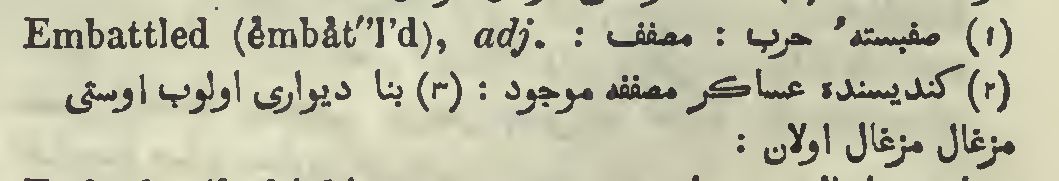 Embattled (ĕmbăt″l’d), adj. : (۱) صفبستهٔ حرب : مصفف :
(۲) کندیسنده عساکر مصففه موجود : (۳) بنا دیواری اولوب اوستی
مزغال مزغال اولان :